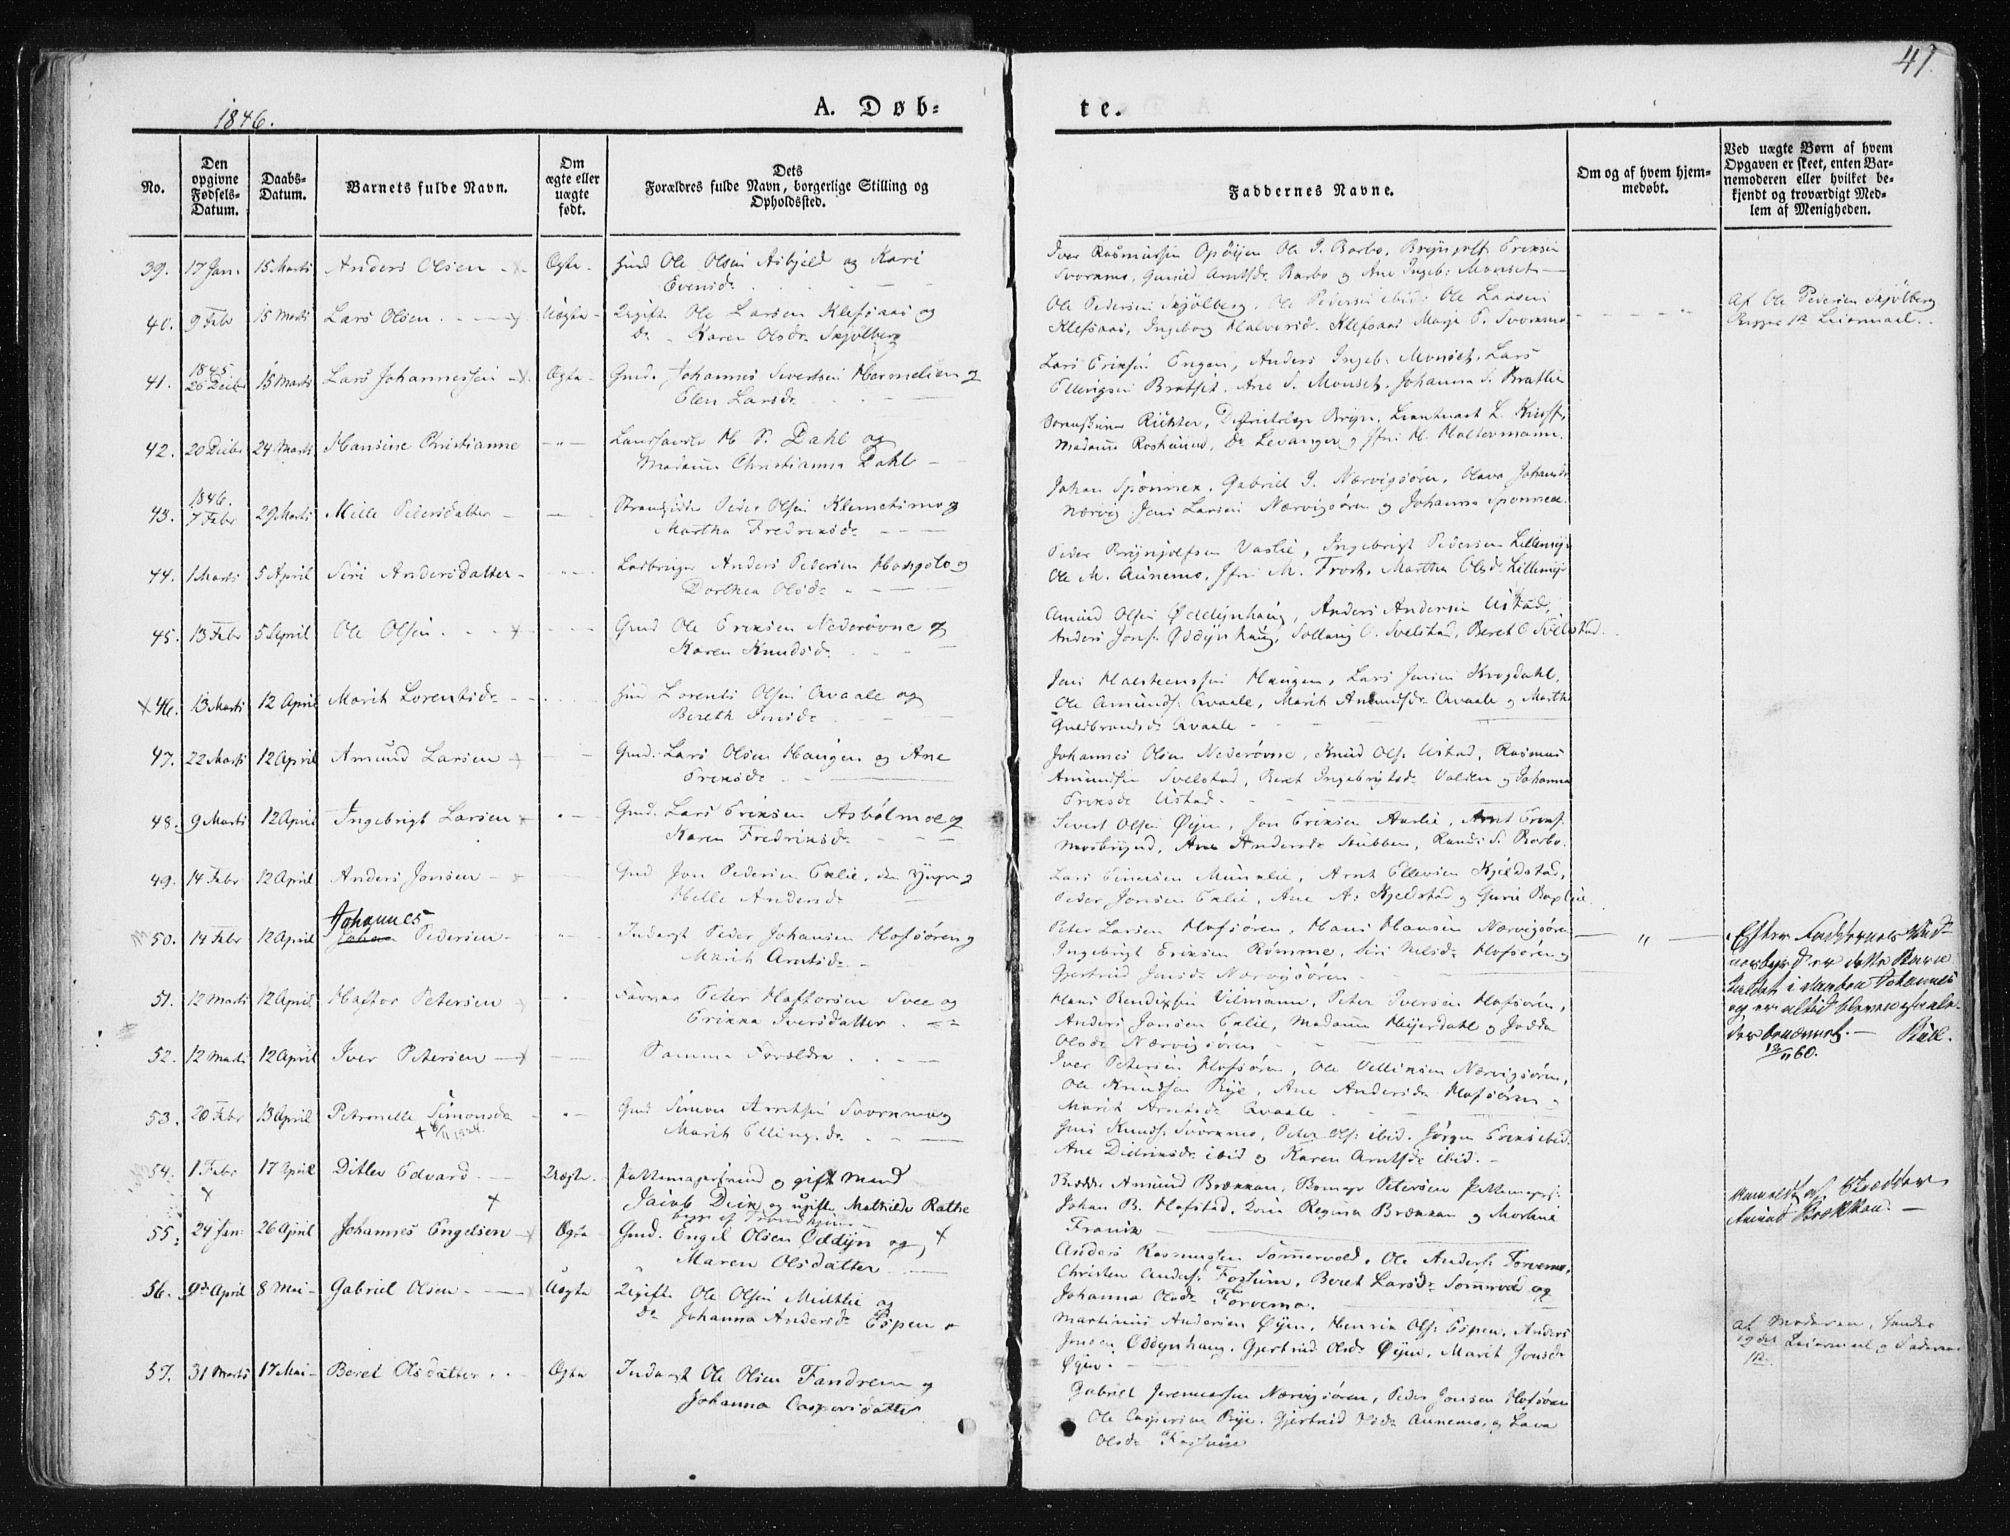 47.
1846.
A. Døb-
te.
No.
Den opgivne Fødsels-Datum.
Daabs-Datum.
Barnets fulde Navn.
Om ægte eller uægte født.
Dets Forældres fulde Navn, borgerlige Stilling og Opholdssted.
Faddernes Navne.
Om og af hvem hjemmedøbt.
Ved uægte Børn af hvem Opgaven er skeet, enten Barnemoderen eller hvilket bekjendt og troværdigt Medlem af Menigheden.
39. 17 Jan. 15 Marts Anders Olsen Ægte Ole Olsen Asbjeld og Kari
Evensd.
Iver Rasmussen Opøijen Ole I. Barbo, Brynjolf Eriksen
Svorkmo, Gunild Arntsdr Barbo og Ane Ingeb: Monset
40. 9 Febr 15 Marts Lars Olsen Uægte Ugifte Ole Larsen Klefsaas og
do Karen Olsdr Skjølberg
Ole Pedersen Skjølberg, Ole Pedersen ibid: Ole Larsen
Klefsaas, Ingeborg Halvorsd. Klefsaas Marje P. Svorkmo
Af Ole Pedersen Skjølberg
Begges 1te Leiermaal.
41. 1845 26 Decbr 15 Marts Lars Johannessen Ægte Gmd. Johannes Sivertsen Hermelien og
Elen Larsdr
Lars Eriksen Engen, Anders Ingeb: Monset, Lars
Ellevsen Bratset, Ane S. Monset, Johanna S. Bratlie
42. 20 Decbr 24 Marts Hansine Christianne Landhandler H. P. Dahl og
Madame Christianna Dahl
Richter, Districtslæge Bryn, Lieutnant L. Krefft,
Madame Roshaud, do Levanger og Jfr: H. Holtermann.
43. 1846. 7 Febr 29 Marts Mille Pedersdatter Strandsidder Peder Olsen Klemetsmo og
Martha Fredriksdr
Johan Sponnek, Gabriel J. Nærvigsøren, Olava Johansdr
Nærvig, Jens Larsen Nærvigsøren og Johanna Sponnek
44. 1 Marts 5 April Siri Andersdatter Anders Pedersen Hongslo og
Dorthea Olsdr
Peder Brynjolfsen Vaslie, Ingebrigt Pedersen
Ole M. Aunemo, Jfr: M. Frost, Martha Olsdr
45. 13 Febr 5 April Ole Olsen Gmd Ole Eriksen Nederøvne og
Karen Knudsdr
Amund Olsen Oddijnhaug, Anders Andersen Ustad,
Anders Jons: Oddijnhaug, Solloug O. Svelstad, Beret O Svelstad.
46. 13 Marts 12 April Marit Lorentsdr Lorents Olsen Qvaale og
Bereth Jonsdr
Jens Halstensen Haugen, Lars Jensen Krogdahl,
Ole Amunds: Qvaale, Marit Amundsdr Qvaale og Marthe
Guldbrandsdr Qvaale
47. 22 Marts 12 April Amund Larsen Gmd. Lars Olsen Haugen og Ane
Eriksdr
Johannes Olsen Nederøvne, Knud Ols: Ustad, Rasmus
Amundsen Svelstad, Beret Ingebrigtsdr Volden og Johanna
Eriksdr Ustad.
48. 9 Marts 12 April Ingebrigt Larsen Gmd. Lars Eriksen Asbølmoe og
Karen Fredriksdr
Sivert Olsen Øijen, Jon Eriksen Aaslie, Arnt
Mosbrynd, Ane Andersdr Stubben, Randi S. Barbo.
49. 14 Febr 12 April Anders Jonsen Gmd Jon Pedersen Eklie, den yngre og
Helle Andersdr
Lars Einersen Munklie, Arnt Ellevsen Kjeldstad,
Peder Jonsen Eklie, Ane A: Kjeldstad og Gurie
50. 14 Febr 12 April Johannes
Pedersen Inderst Peder Johansen Hofsøren og
Marit Arntsdr
Peter Larsen Hofsøren, Hans Hansen Nærvigsøren
Ingebrigt Eriksen Rømme, Siri Nilsdr Hofsøren og
Gjertrud Jonsdr Nærvigsøren
Efter Faddernes
er dette Barn
kaldet i Daaben Johannes
og er altid
benævnt. Bull.
12/11 60.
51. 12 Marts 12 April Haftor Petersen Farver Peter Haftorsen Svee og
Erikka Iversdatter
Hans Bendixen Vilmann, Peter Iversen Hofsøren,
Anders Jonsen Eklie, Madame Heyerdahl og
Olsdr Nærvigsøren
52. 12 Marts 12 April Iver Petersen Samme Forældre
Iver Petersen Hofsøren, Ole Vellissen Nærvigsøren,
Ole Knudsen Rye, Ane Andersdr Hofsøren
Marit Arntsdr Qvaale
53. 20 Febr 13 April Petronelle Simonsdr
Gmd Simon Arntsen Svorkmo og
Marit Ellingsdr
Jens Knuds: Svorkmo, Peter Ols: ibid. Jørgen Eriks: ibid.
Ane Didriksdr ibid og Karen Arntsdr ibid.
54. 1 Febr 17 April Ditlev Edvard Uægte Pakkmagersvend og gift Mand
Jacob Dick og ugifte Mathilde Rathe
begge af Trondhjem
Amund Brækkan,
Johan B. Hofstad, Regina Brækkan og
Anmeldt af
Amund Brækkan.
55. 24 Jan: 26 April Johannes Engelsen Ægte Gmd. Engel Olsen Oddijn og
Maren Olsdatter
Anders Rasmussen Sommervold, Ole Anders: Torvmo,
Christen Anders: Fossum, Beret Larsdr Sommervold og
Johanna Olsdr Torvmo.
56. 9de April 8 Mai Gabriel Olsen Uægte Ugifte Ole Olsen og
do Johanna Andersdr Espen
Martinus Andersen Øijen, Henrik Ols: Espen, Anders
Jonsen Oddijnhaug, Gjertrud Olsdr Øijen, Marit Jonsdr
Øijen.
af Moderen, hendes
Leiermaal og Faderens
1te.
57. 31 Marts 17 Mai Beret Olsdatter Ægte Inderst Ole Olsen Fandrem og
Johanna Caspersdatter
Gabriel Jeremiassen Nærvigsøren, Peder Jonsen Hofsøren
Ole Caspersen Rye, Gjertrud Aunemo, og Lava
Olsdr